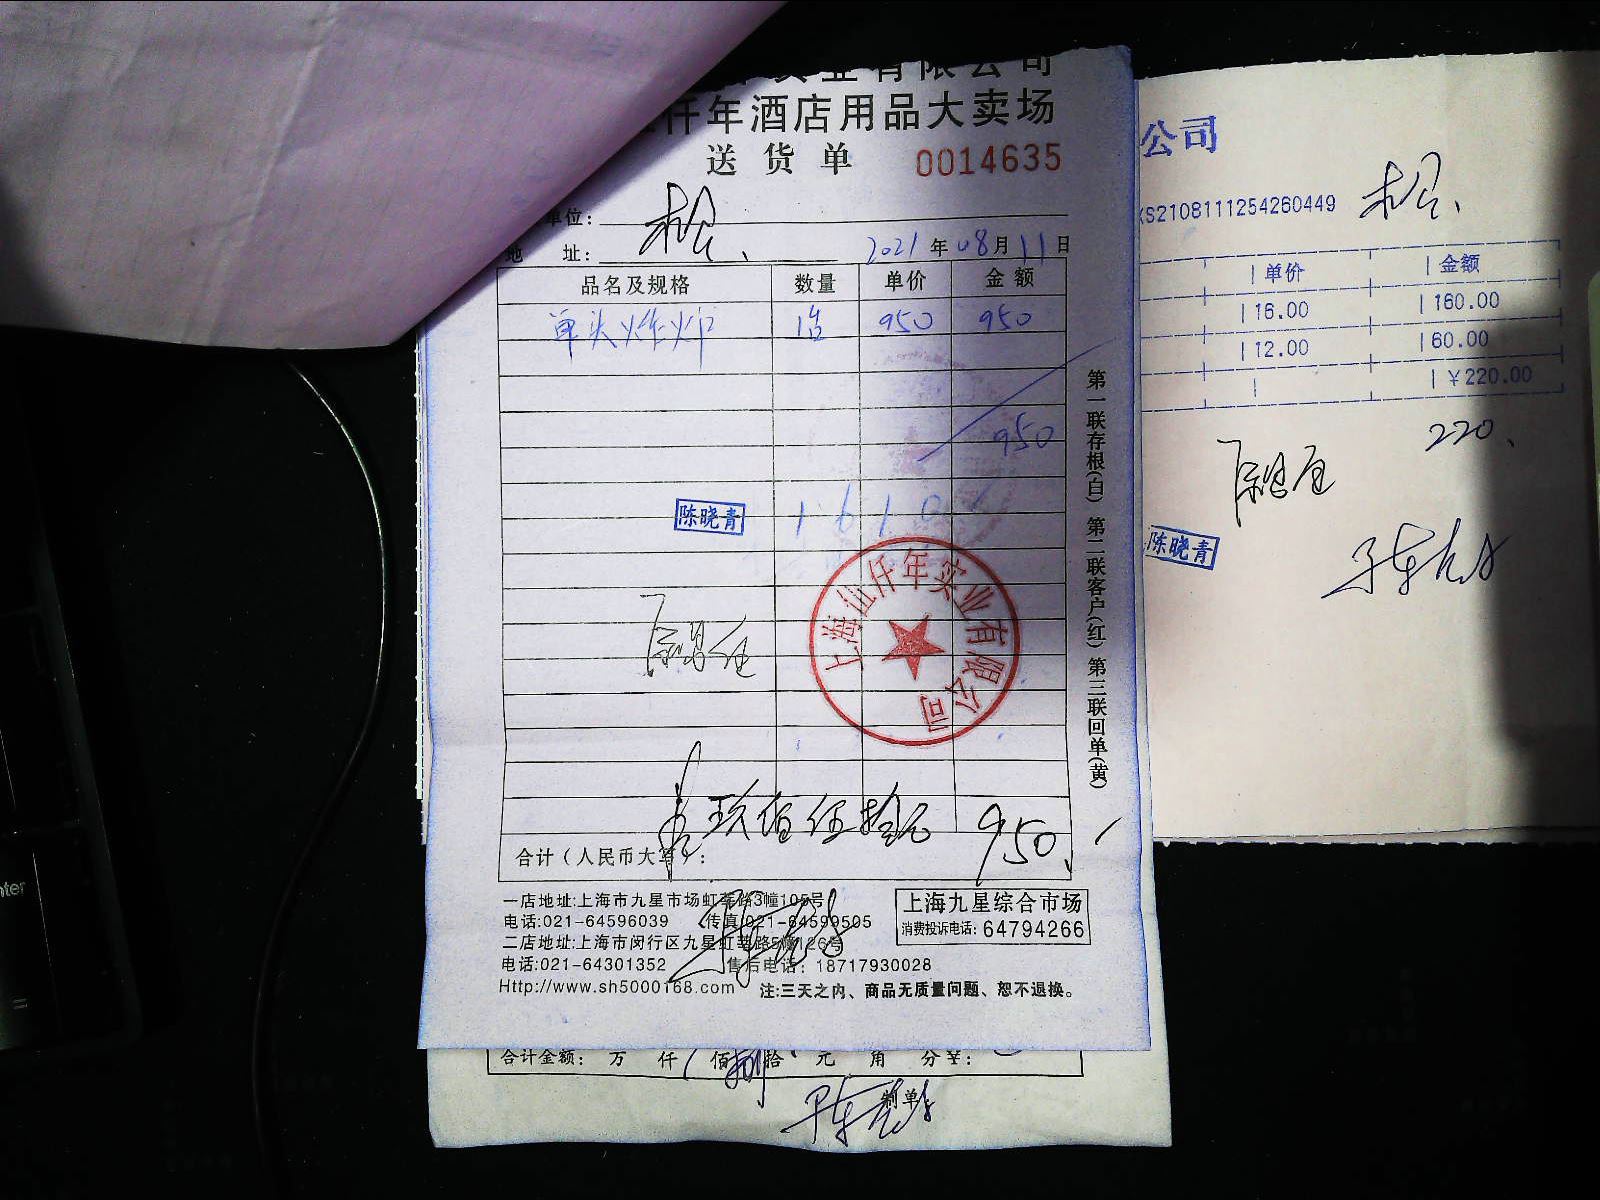 实业有限公司
仟年酒店用品大卖场
送货单 0014635
单位:
地 址: 2021年08月11日
品名及规格 数量 单价 金额
单头炸炉 1台 950 950
950
陈晓青 1610
上海伍仟年实业有限公司
玖佰伍拾元 950
合计(人民币大写):
第一联存根(白) 第二联客户(红) 第三联回单(黄)
一店地址:上海市九星市场虹莘路3幢105号
电话:021-64596039 传真:021-64599505
二店地址:上海市闵行区九星虹莘路5幢126号
电话:021-64301352 售后电话: 18717930028
Http://www.sh5000168.com 注:三天之内、商品无质量问题、恕不退换。
上海九星综合市场
消费投诉电话: 64794266
合计金额: 万 仟 佰 拾 元 角 分
制单
公司
XS2108111254260449
单价 金额
16.00 160.00
12.00 60.00
¥220.00
220
陈晓青
nter